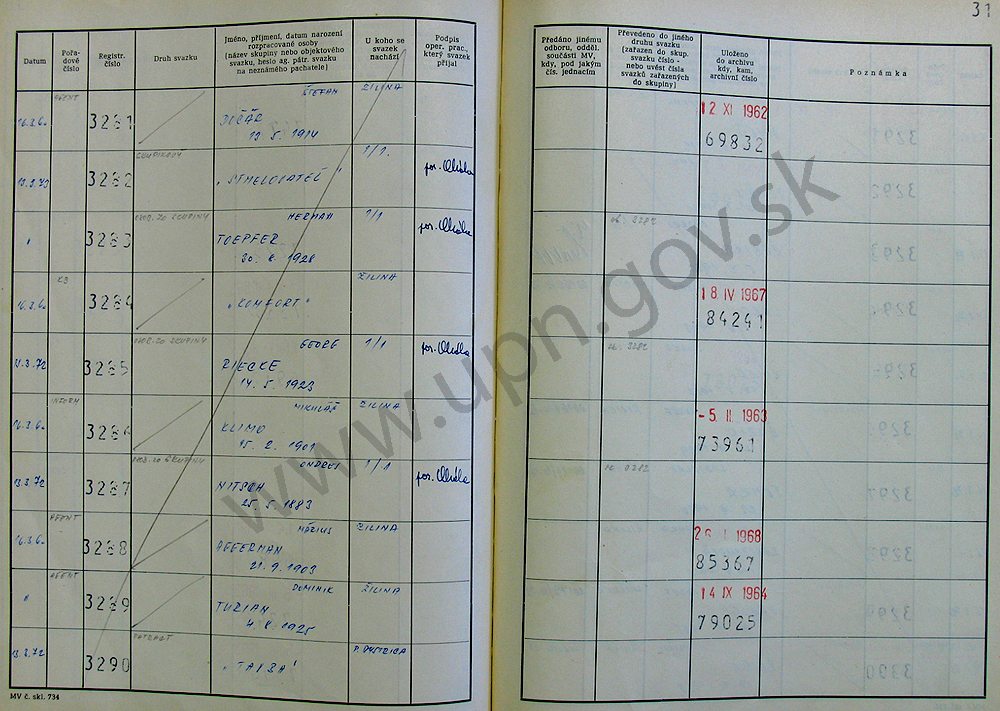 31
Datum
Pořa-
dové
číslo
Registr.
číslo
Druh svazku
Jméno, příjmení, datum narození
rozpracované osoby
(název skupiny nebo objektového
svazku, heslo ag. pátr. svazku
na neznámého pachatele)
U koho se
svazek
nachází
Podpis
oper. prac.,
který svazek
přijal
Předáno jinému
odboru, odděl.
součásti MV,
kdy, pod jakým
čís. jednacím
Převedeno do jiného
druhu svazku
(zařazen do skup.
svazku číslo -
nebo uvést čísla
svazků zařazených
do skupiny)
Uloženo
do archivu
kdy, kam,
archivní číslo
Poznámka
AGENT ŠTEFAN ŽILINA
16.3.60 3281
13. 5. 1914
12 XI 1962
69832
SKUPINOVÝ 1/1.
13.3.72 3282 "STMELOVATEĽ"
POBOČ. ZO SKUPINY HERMAN 1/1
" 3283 TOEPFER
30. 8. 1928
sk. 3282
ŽILINA
16.3.60 3284 "KOMFORT"
18 IV 1967
84241
ZO SKUPINY GEORG 1/1
3285 RIECKE
14. 5. 1923
sk. 3282
INFORM MIKULÁŠ ŽILINA
16.3.60 3286 KLIMO
15. 2. 1901
-5. II. 1963
73961
ZO SKUPINY ONDREJ 1/1
13.3.72 3287 NITSCH
25. 5. 1883
sk. 3282
AGENT MÁRIUS ŽILINA
16.3.60 3288
21. 9. 1903
1968
85367
AGENT DOMINIK ŽILINA
" 3289 TURIAN
4. 8. 1925
14 IX 1964
79025
B. BYSTRICA
13.3.72 3290 "TAJGA"
MV č. skl. 734
www.upn.gov.sk